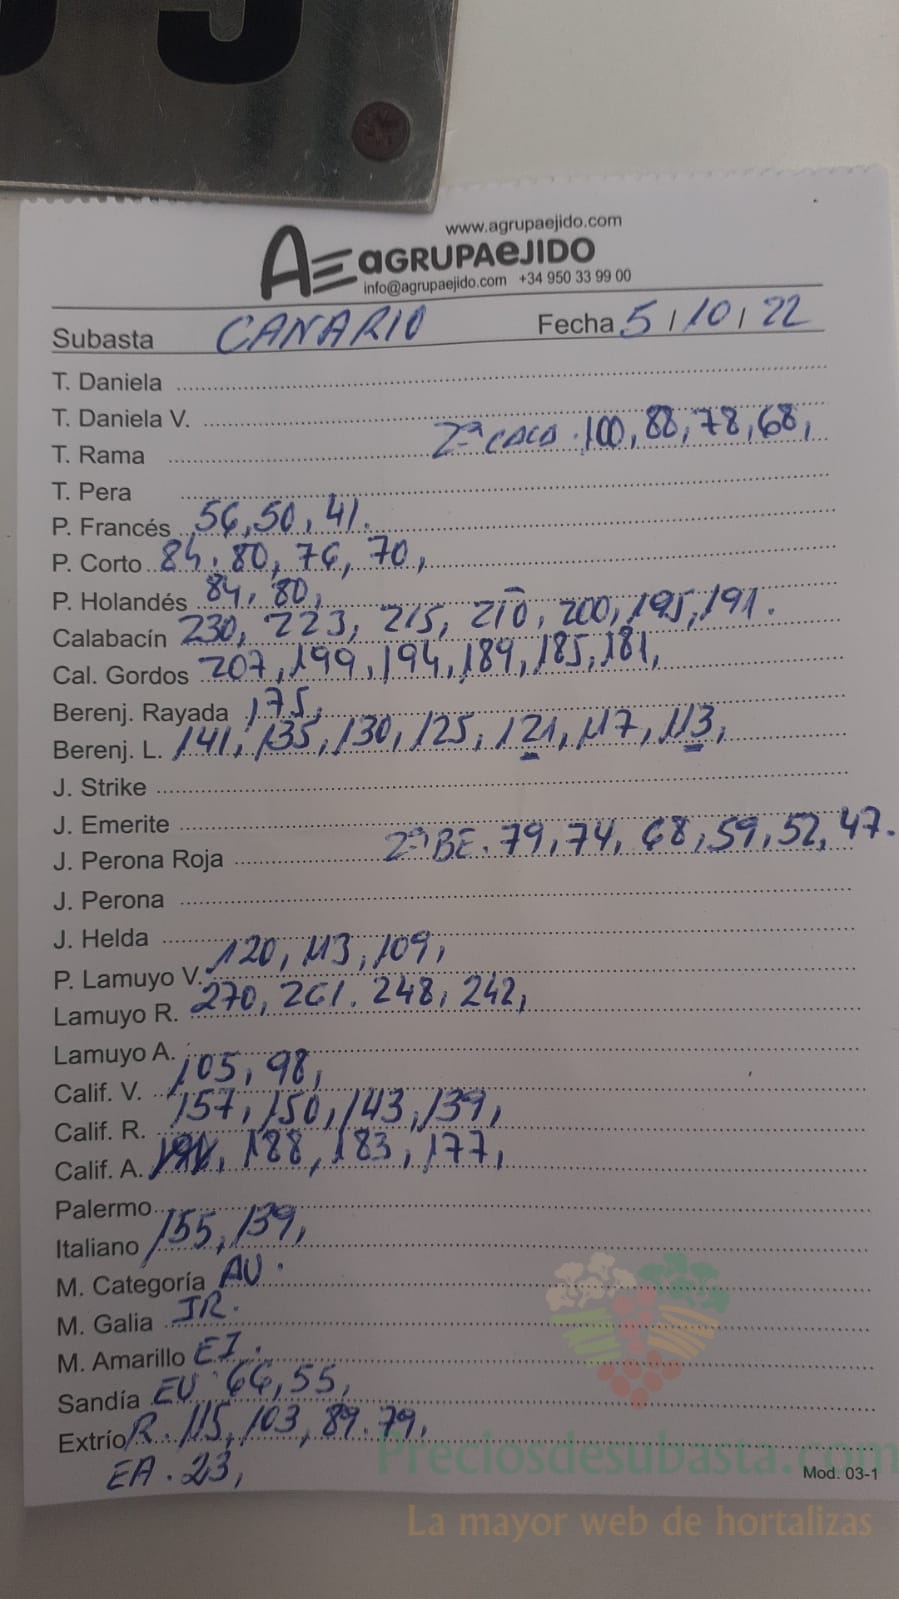 www.agrupaejido.com
AE aGRUPAeJIDO
info@agrupaejido.com +34 950 33 99 00
Subasta CANARIO Fecha 5 / 10 / 22
T. Daniela
T. Daniela V.
T. Rama 2ª CALA. 100, 88, 78, 68,
T. Pera
P. Francés 56, 50, 41.
P. Corto 84, 80, 76, 70,
P. Holandés 84, 80,
Calabacín 230, 223, 215, 210, 200, 195, 191.
Cal. Gordos 207, 199, 194, 189, 185, 181,
Berenj. Rayada 175,
Berenj. L. 141, 135, 130, 125, 121, 117, 113,
J. Strike
J. Emerite
J. Perona Roja 2ª BE. 79, 74, 68, 59, 52, 47.
J. Perona
J. Helda
P. Lamuyo V. 120, 113, 109,
Lamuyo R. 270, 261. 248, 242,
Lamuyo A.
Calif. V. 105, 98,
Calif. R. 157, 150, 143, 139,
Calif. A. 188, 183, 177,
Palermo
Italiano 155, 139,
M. Categoría AU.
M. Galia JR.
M. Amarillo EI.
Sandía EU 66, 55,
Extrío R. 115, 103, 89. 79,
EA. 23,
Mod. 03-1
Preciosdesubasta.com
La mayor web de hortalizas